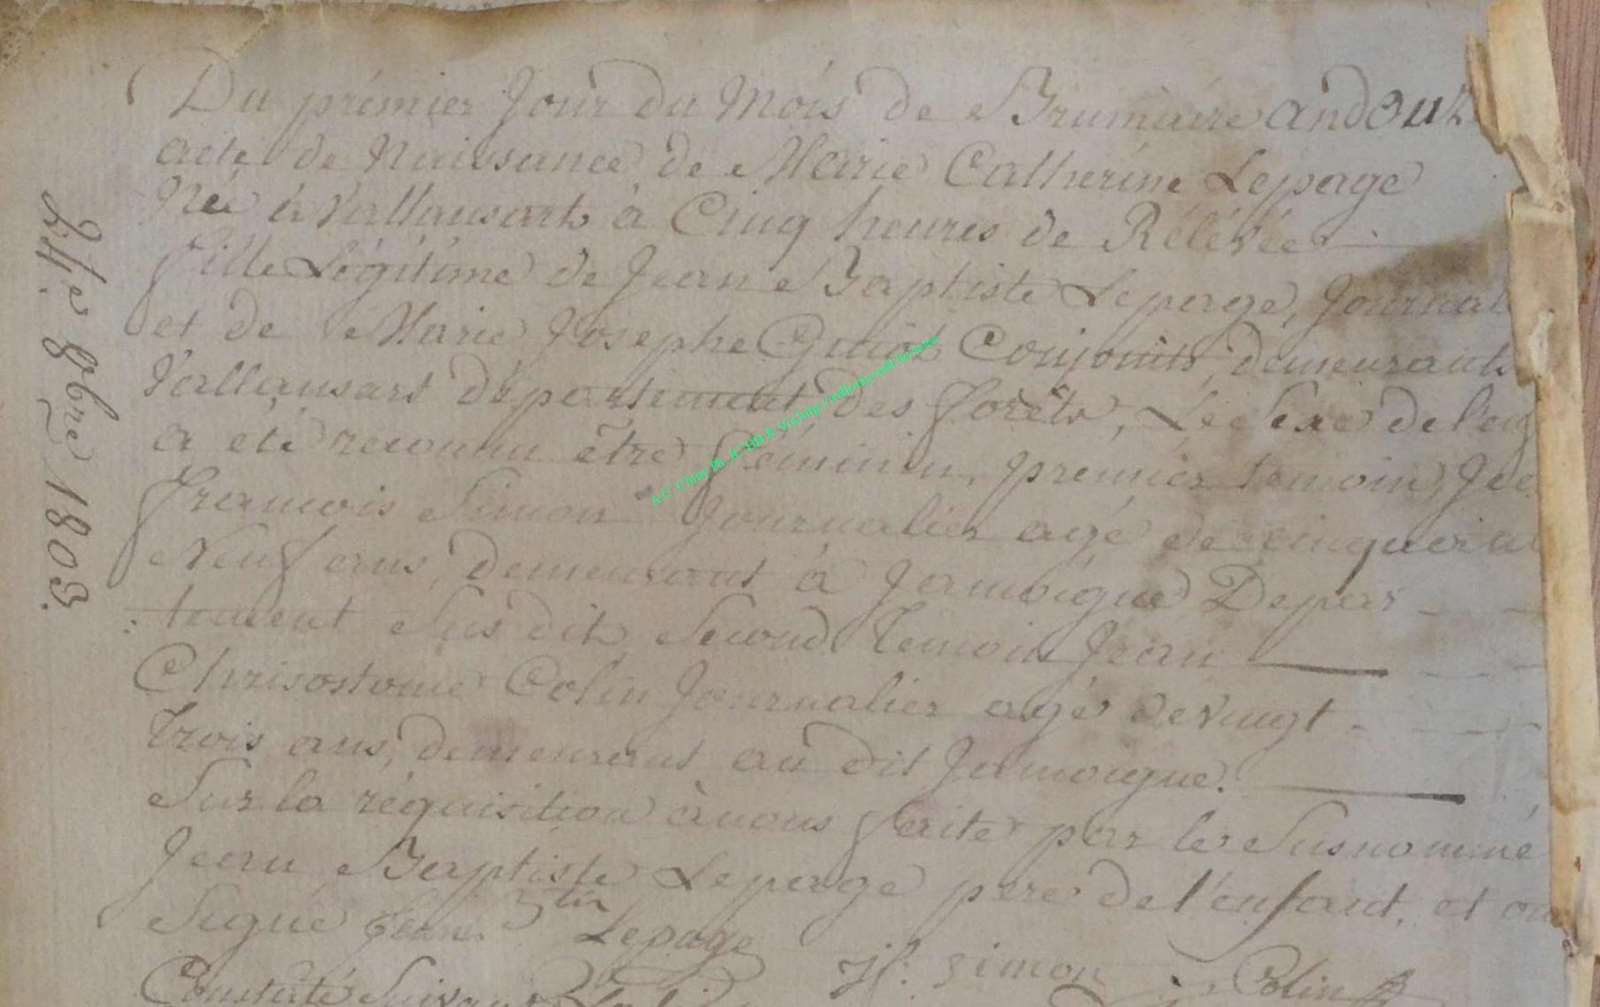 Du prémier Jour du Mois de Brumaire an douz
acte de Naissance de Marie Catherine Lepage
Née à Vallansart à Cinq heures de Rélévée
fille Légitime de Jean Baptiste Lepage, Journal
et de Marie Josephe Guiot Conjoints, demeurants
Vallansart département des forêts, Le Sexe de l'en
a eté reconnu être féminin, premier temoin, Je
François Simon Journalier agé de cinquan
Neuf ans, demeurant à Jamoigne Depar
tement Sus dit, Second Temoin Jean
Chrisostome Colin Journalier agé de vingt
Trois ans, demeurant au dit Jamoigne.
Sur la réquisition à nous faite par le Susnommé
Jean Baptiste Lepage pere de l'enfant, et on
Signé Jean Btte Lepage Jf. Simon J Colin
Constaté Suivant
24e 8bre 1803.